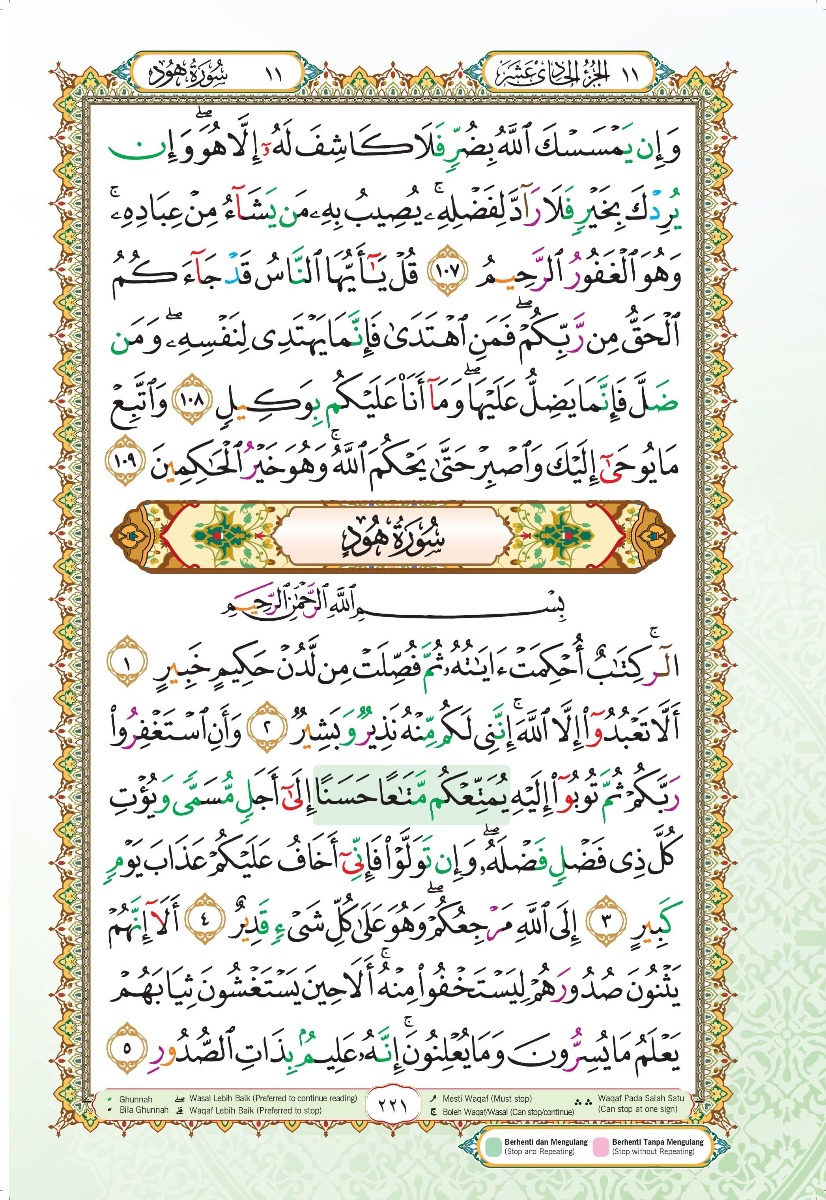 سُورَةُ هُودٍ ١١
الجُزْءُ الحَادِي عَشَرَ ١١
وَإِن يَمْسَسْكَ ٱللَّهُ بِضُرٍّ فَلَا كَاشِفَ لَهُۥٓ إِلَّا هُوَ ۖ وَإِن
يُرِدْكَ بِخَيْرٍ فَلَا رَآدَّ لِفَضْلِهِۦ ۚ يُصِيبُ بِهِۦ مَن يَشَآءُ مِنْ عِبَادِهِۦ ۚ
وَهُوَ ٱلْغَفُورُ ٱلرَّحِيمُ ١٠٧ قُلْ يَـٰٓأَيُّهَا ٱلنَّاسُ قَدْ جَآءَكُمُ
ٱلْحَقُّ مِن رَّبِّكُمْ ۖ فَمَنِ ٱهْتَدَىٰ فَإِنَّمَا يَهْتَدِى لِنَفْسِهِۦ ۖ وَمَن
ضَلَّ فَإِنَّمَا يَضِلُّ عَلَيْهَا ۖ وَمَآ أَنَا۠ عَلَيْكُم بِوَكِيلٍ ١٠٨ وَٱتَّبِعْ
مَا يُوحَىٰٓ إِلَيْكَ وَٱصْبِرْ حَتَّىٰ يَحْكُمَ ٱللَّهُ ۚ وَهُوَ خَيْرُ ٱلْحَـٰكِمِينَ ١٠٩
سُورَةُ هُودٍ
بِسْمِ ٱللَّهِ ٱلرَّحْمَـٰنِ ٱلرَّحِيمِ
الٓر ۚ كِتَـٰبٌ أُحْكِمَتْ ءَايَـٰتُهُۥ ثُمَّ فُصِّلَتْ مِن لَّدُنْ حَكِيمٍ خَبِيرٍ ١
أَلَّا تَعْبُدُوٓا۟ إِلَّا ٱللَّهَ ۚ إِنَّنِى لَكُم مِّنْهُ نَذِيرٌ وَبَشِيرٌ ٢ وَأَنِ ٱسْتَغْفِرُوا۟
رَبَّكُمْ ثُمَّ تُوبُوٓا۟ إِلَيْهِ يُمَتِّعْكُم مَّتَـٰعًا حَسَنًا إِلَىٰٓ أَجَلٍ مُّسَمًّى وَيُؤْتِ
كُلَّ ذِى فَضْلٍ فَضْلَهُۥ ۖ وَإِن تَوَلَّوْا۟ فَإِنِّىٓ أَخَافُ عَلَيْكُمْ عَذَابَ يَوْمٍ
كَبِيرٍ ٣ إِلَى ٱللَّهِ مَرْجِعُكُمْ ۖ وَهُوَ عَلَىٰ كُلِّ شَىْءٍ قَدِيرٌ ٤ أَلَآ إِنَّهُمْ
يَثْنُونَ صُدُورَهُمْ لِيَسْتَخْفُوا۟ مِنْهُ ۚ أَلَا حِينَ يَسْتَغْشُونَ ثِيَابَهُمْ
يَعْلَمُ مَا يُسِرُّونَ وَمَا يُعْلِنُونَ ۚ إِنَّهُۥ عَلِيمٌۢ بِذَاتِ ٱلصُّدُورِ ٥
Ghunnah
Bila Ghunnah
Wasal Lebih Baik (Preferred to continue reading)
Waqaf Lebih Baik (Preferred to stop)
٢٢١
Mesti Waqaf (Must stop)
Boleh Waqaf/Wasal (Can stop/continue)
Waqaf Pada Salah Satu
(Can stop at one sign)
Berhenti dan Mengulang
(Stop and Repeating)
Berhenti Tanpa Mengulang
(Stop without Repeating)